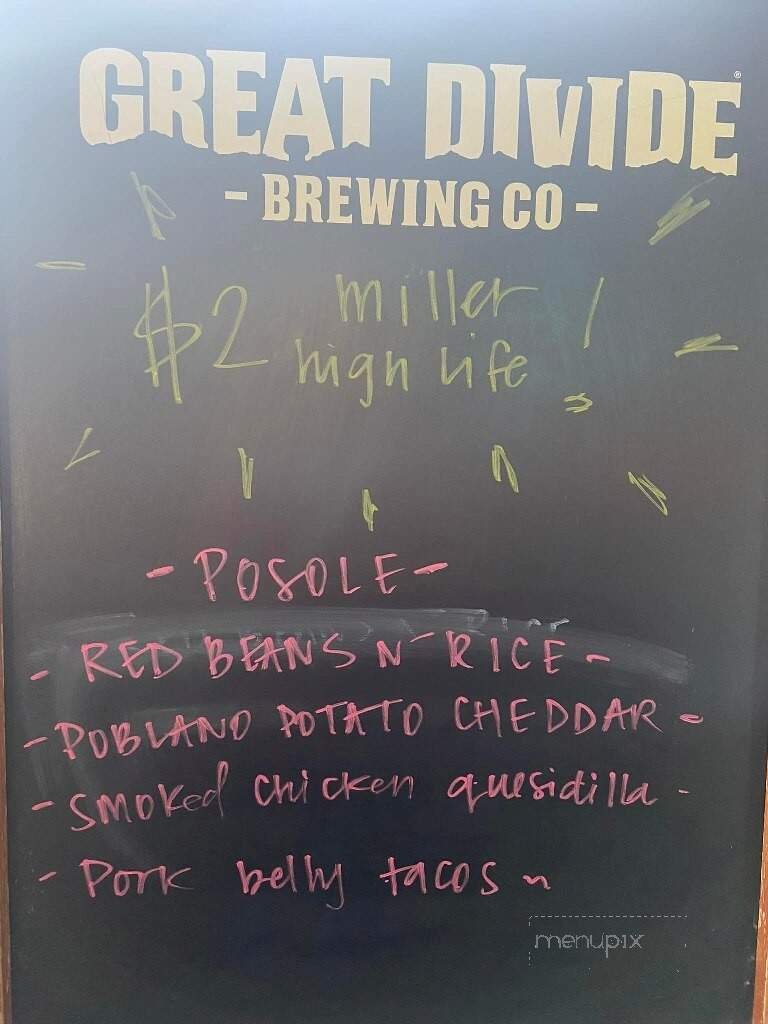 GREAT DIVIDE®
- BREWING CO -
$2 miller high life !
- POSOLE -
- RED BEANS N' RICE -
- POBLANO POTATO CHEDDAR -
- SMOKed chicken quesidilla -
- Pork belly tacos ~
menupix